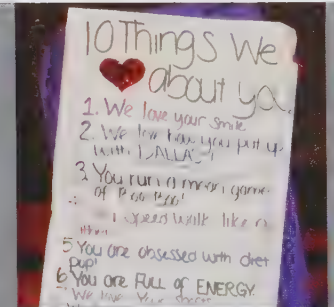 10 Things We
about you
1. We love your smile
2. We love how you put up
with DALLAS!
3 You run a mean game
of
speed walk like a
5 You are obsessed with diet
pop!
6 You are FULL of ENERGY
We love Your